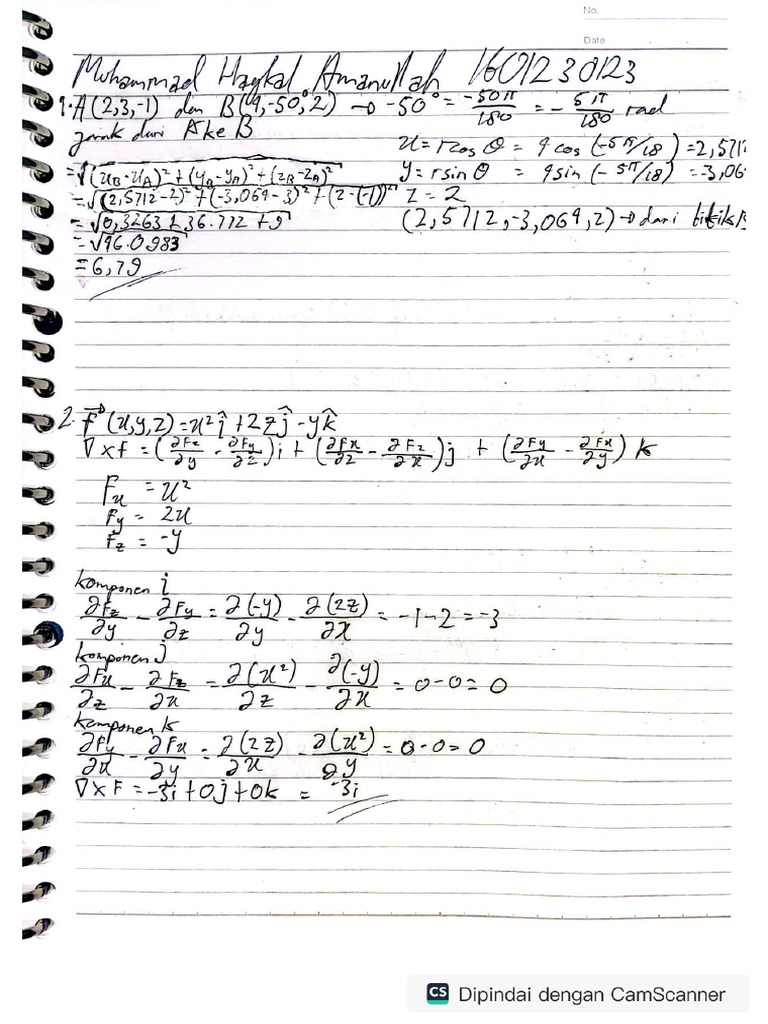 No.
Date
Muhammad Haykal Amanullah 1601230123
1. A(2,3,-1) dan B(4,-50,2) → -50° = -50π/180 = -5π/180 rad
jarak dari A ke B
x = r cos θ = 4 cos (-5π/18) = 2,571
y = r sin θ = 4 sin (-5π/18) = -3,06
= √(x_B-x_A)² + (y_B-y_A)² + (z_B-z_A)²
= √(2,5712-2)² + (-3,064-3)² + (2-(-1))²
z = 2
= √0,3263 + 36.772 + 9
(2,5712,-3,064,2) → dari titik B
= √46.0983
= 6,79
2. F⃗ (x,y,z) = x² î + 2z ĵ - y k̂
∇ x F = (∂Fz/∂y - ∂Fy/∂z)i + (∂Fx/∂z - ∂Fz/∂x)j + (∂Fy/∂x - ∂Fx/∂y) k
Fx = x²
Fy = 2x
Fz = -y
komponen i
∂Fz/∂y - ∂Fy/∂z = ∂(-y)/∂y - ∂(2z)/∂x = -1-2 = -3
komponen j
∂Fx/∂z - ∂Fz/∂x = ∂(x²)/∂z - ∂(-y)/∂x = 0-0 = 0
komponen k
∂Fy/∂x - ∂Fx/∂y = ∂(2z)/∂x - ∂(x²)/∂y = 0-0 = 0
∇ x F = -3i + 0j + 0k = -3i
CS Dipindai dengan CamScanner